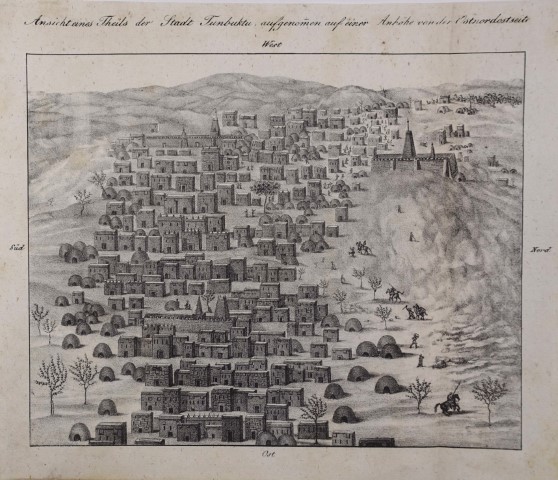 Ansicht eines Theils der Stadt Tunbuktu, aufgenom̄en auf einer Anhöhe von der Ostnordostseite
West
Süd
Nord
Ost